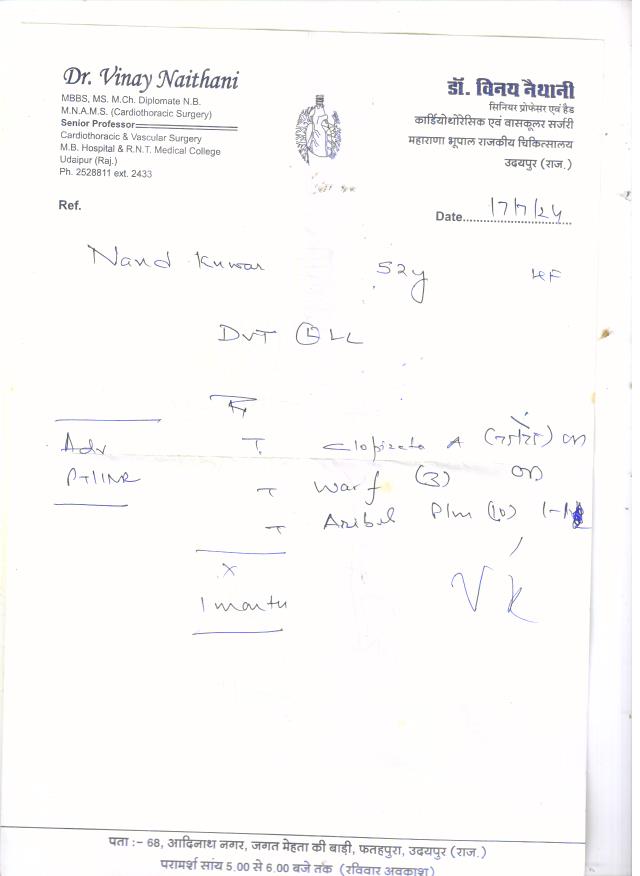 Dr. Vinay Naithani
MBBS, MS. M.Ch. Diplomate N.B.
M.N.A.M.S. (Cardiothoracic Surgery)
Senior Professor
Cardiothoracic & Vascular Surgery
M.B. Hospital & R.N.T. Medical College
Udaipur (Raj.)
Ph. 2528811 ext. 2433
डॉ. विनय नैथानी
सिनियर प्रोफेसर एवं हैड
कार्डियोथोरेसिक एवं वासकूलर सर्जरी
महाराणा भूपाल राजकीय चिकित्सालय
उदयपुर (राज.)
Ref.
Date 17/7/24
Nand Kunwar 52y
DVT Ⓛ LL
Adv
PT/INR
T. A
T Warf (3)
T (10)
x
1 month
पता :– 68, आदिनाथ नगर, जगत मेहता की बाड़ी, फतहपुरा, उदयपुर (राज.)
परामर्श सांय 5.00 से 6.00 बजे तक (रविवार अवकाश)